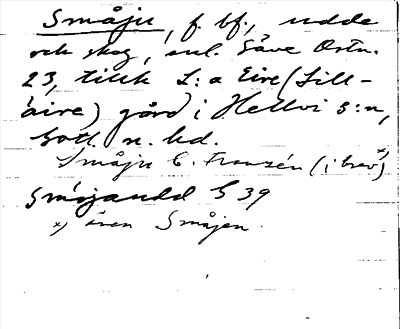 Småju, f. bf., udde
och skog, enl. Säve Ortn.
23, tillh L:a Eire (Lill-
äire) gård i Hellvi s:n,
Gotl. n. hd.
Småju C. Franzén (i brev) x)
Småjaudd G 39
x) även Småjen.